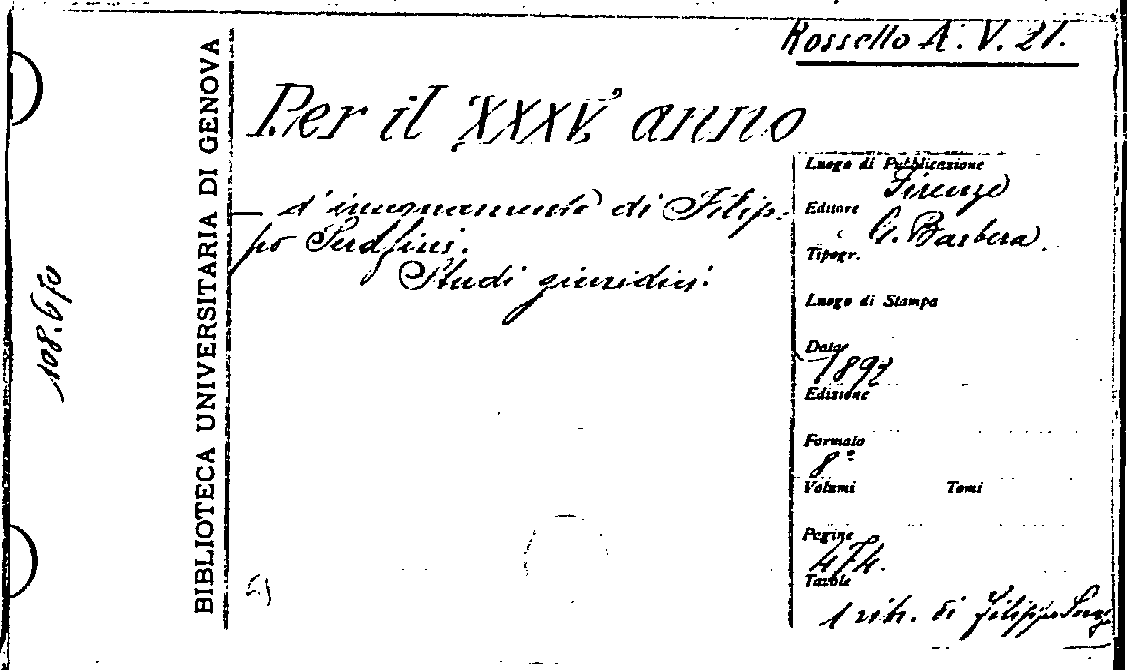 Rossello A. V. 21.
BIBLIOTECA UNIVERSITARIA DI GENOVA
108.670
Per il XXXV anno
d'insegnamento di Filip-
po Serafini.
Studi giuridici
Luogo di Pubblicazione
Firenze
Editore
G. Barbèra.
Tipogr.
Luogo di Stampa
Data
1892
Edizione
Formato
8°
Volumi Tomi
Pagine
474.
Tavole
1 ritr. di Filippo